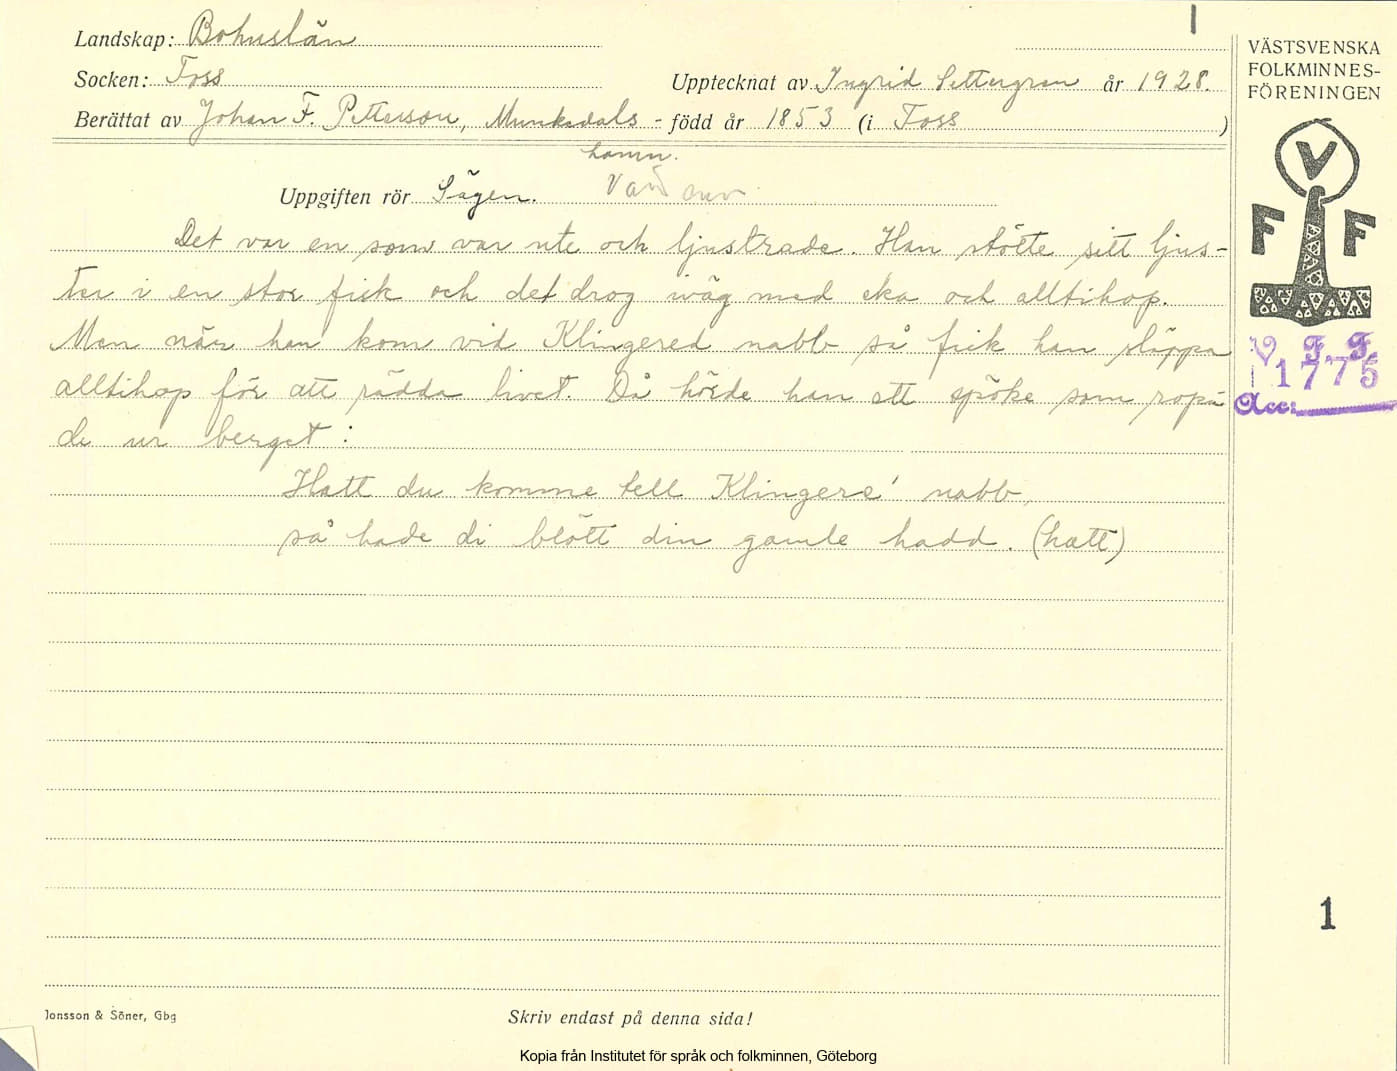 Landskap: Bohuslän
VÄSTSVENSKA
FOLKMINNES-
FÖRENINGEN
Socken: Foss
Upptecknat av Ingrid Settergren år 1928.
Berättat av Johan F. Petterson, Munkedals- född år 1853 (i Foss )
hamn.
Uppgiften rör Sägen.
Det var en som var ute och ljustrade. Han stötte sitt ljus-
ter i en stor fisk och det drog iväg med eka och alltihop.
Men när han kom vid Klingered nabb så fick han släppa
alltihop för att rädda livet. Då hörde han ett spöke som ropa-
de ur berget:
Hatt du komme tell Klingere' nabb,
så hade di blött din gamle hadd. (hatt)
V
F F
V F F
1775
Acc:
1
Jonsson & Söner, Gbg
Skriv endast på denna sida!
Kopia från Institutet för språk och folkminnen, Göteborg